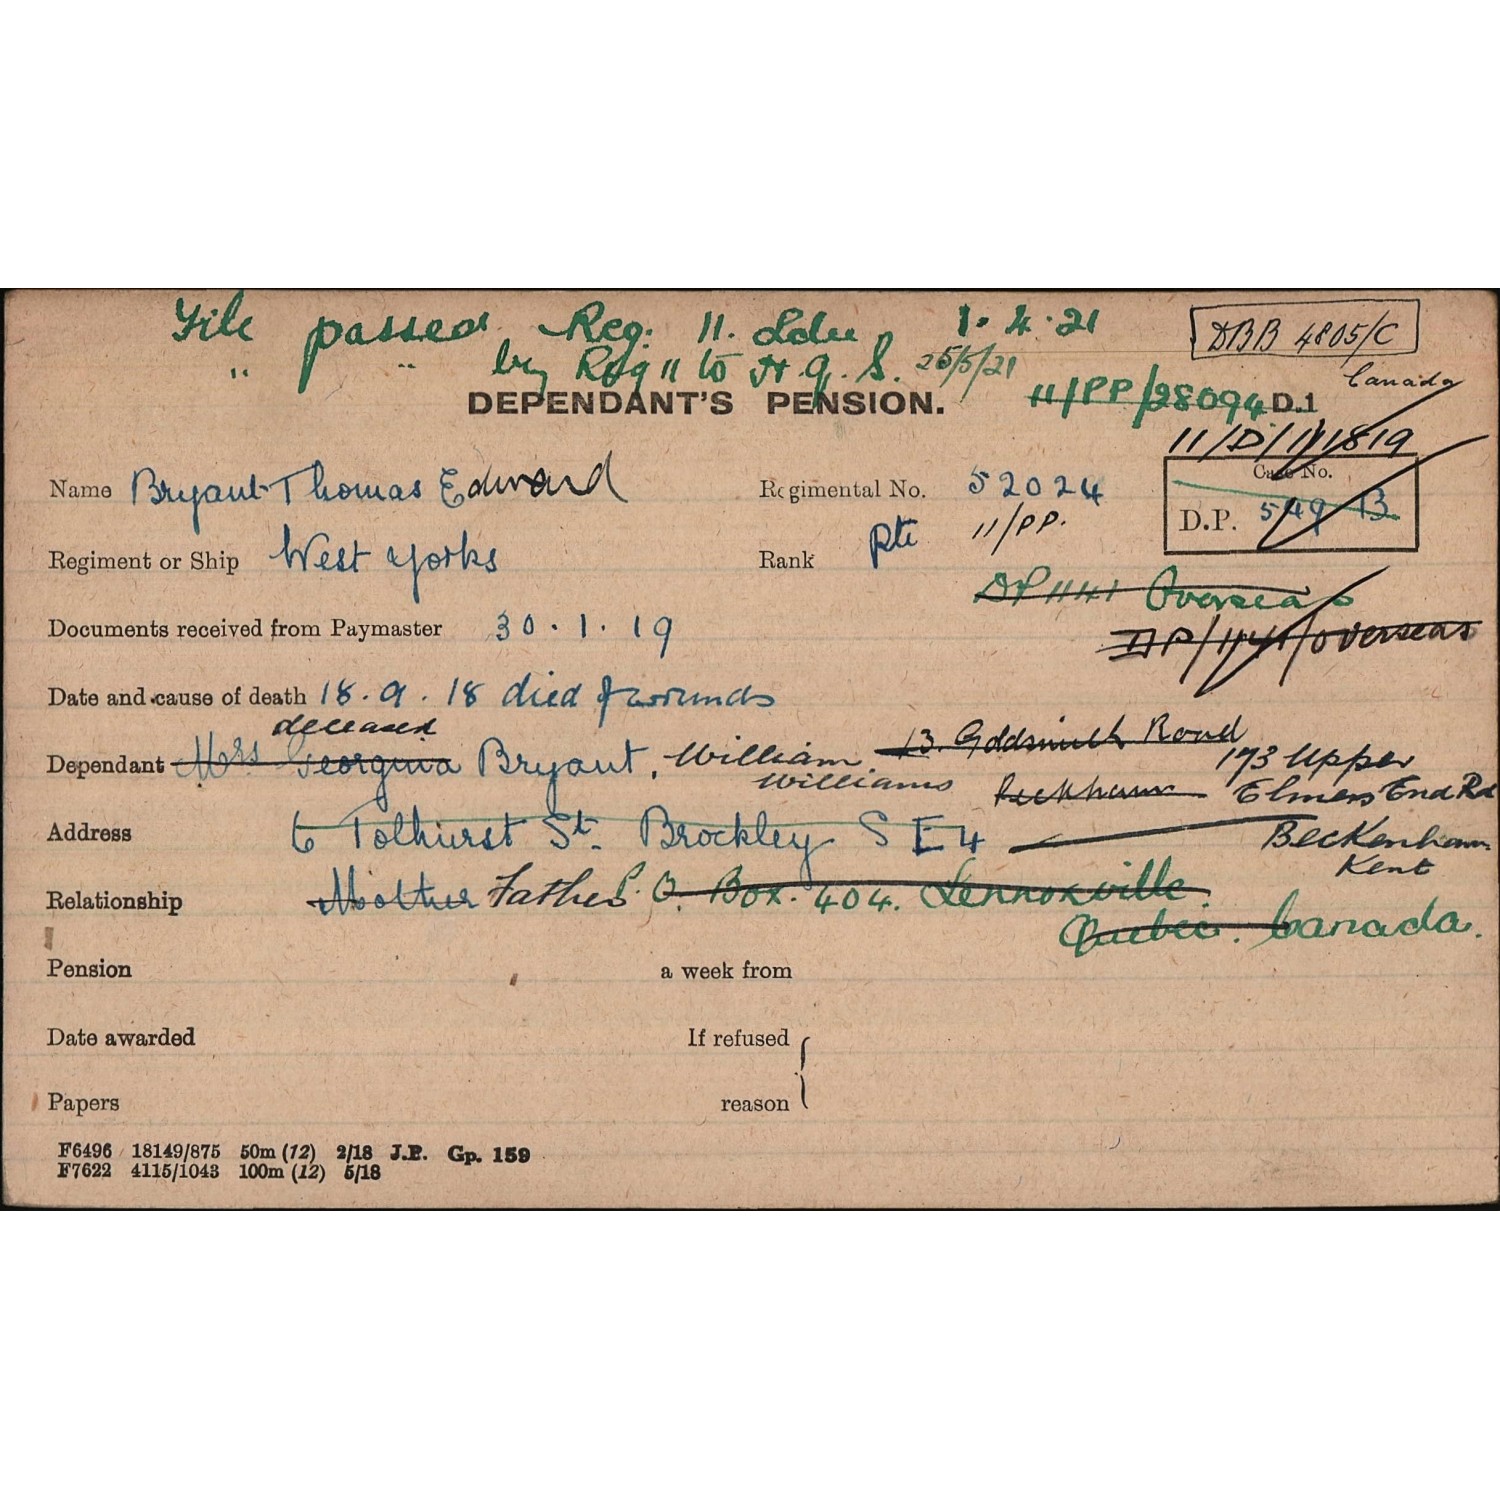 File passed Reg: 11. 1.4.21
" " by Reg 11 to H.Q.S. 25/5/21
DBB 4805/C
Canada
DEPENDANT'S PENSION.
11/PP/28094 D.1
11/D/11819
Case No.
D.P. 549 13
Name Bryant Thomas Edward
Regimental No. 52024
11/PP.
Regiment or Ship West Yorks
Rank Pte
DP 1141 Overseas
DP/1141/overseas
Documents received from Paymaster 30.1.19
Date and cause of death 18.9.18 died of wounds
deceased
Dependant Mrs Georgina Bryant, William 13. Goldsmith Road
Williams Peckham
173 Upper
Elmers End Rd
Beckenham
Kent
Address 6 Tolhurst St. Brockley S E 4
Relationship Mother Father P.O. Box. 404. Lennoxville.
Quebec. Canada.
Pension a week from
Date awarded If refused
Papers reason
F6496 18149/875 50m (12) 2/18 J.P. Gp. 159
F7622 4115/1043 100m (12) 5/18